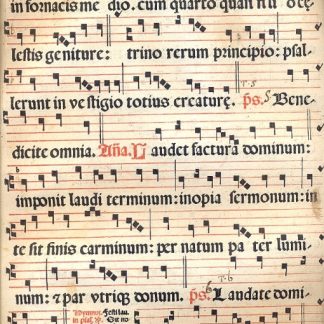 in fornacis me dio. cum quarto quan
lestis geniture: trino rerum principio: psal-
T. 5
lerunt in ve stigio totius creature. p̄s. 5 Bene-
dicite omnia. Aña. L audet factura dominum:
imponit laudi terminum: inopia sermonum: in
te sit finis carminum: per natum pa ter lumi-
T. 6
num: ⁊ par utriq; donum. p̄s. 6 Laudate domi-
Hymnus. Festi lau.